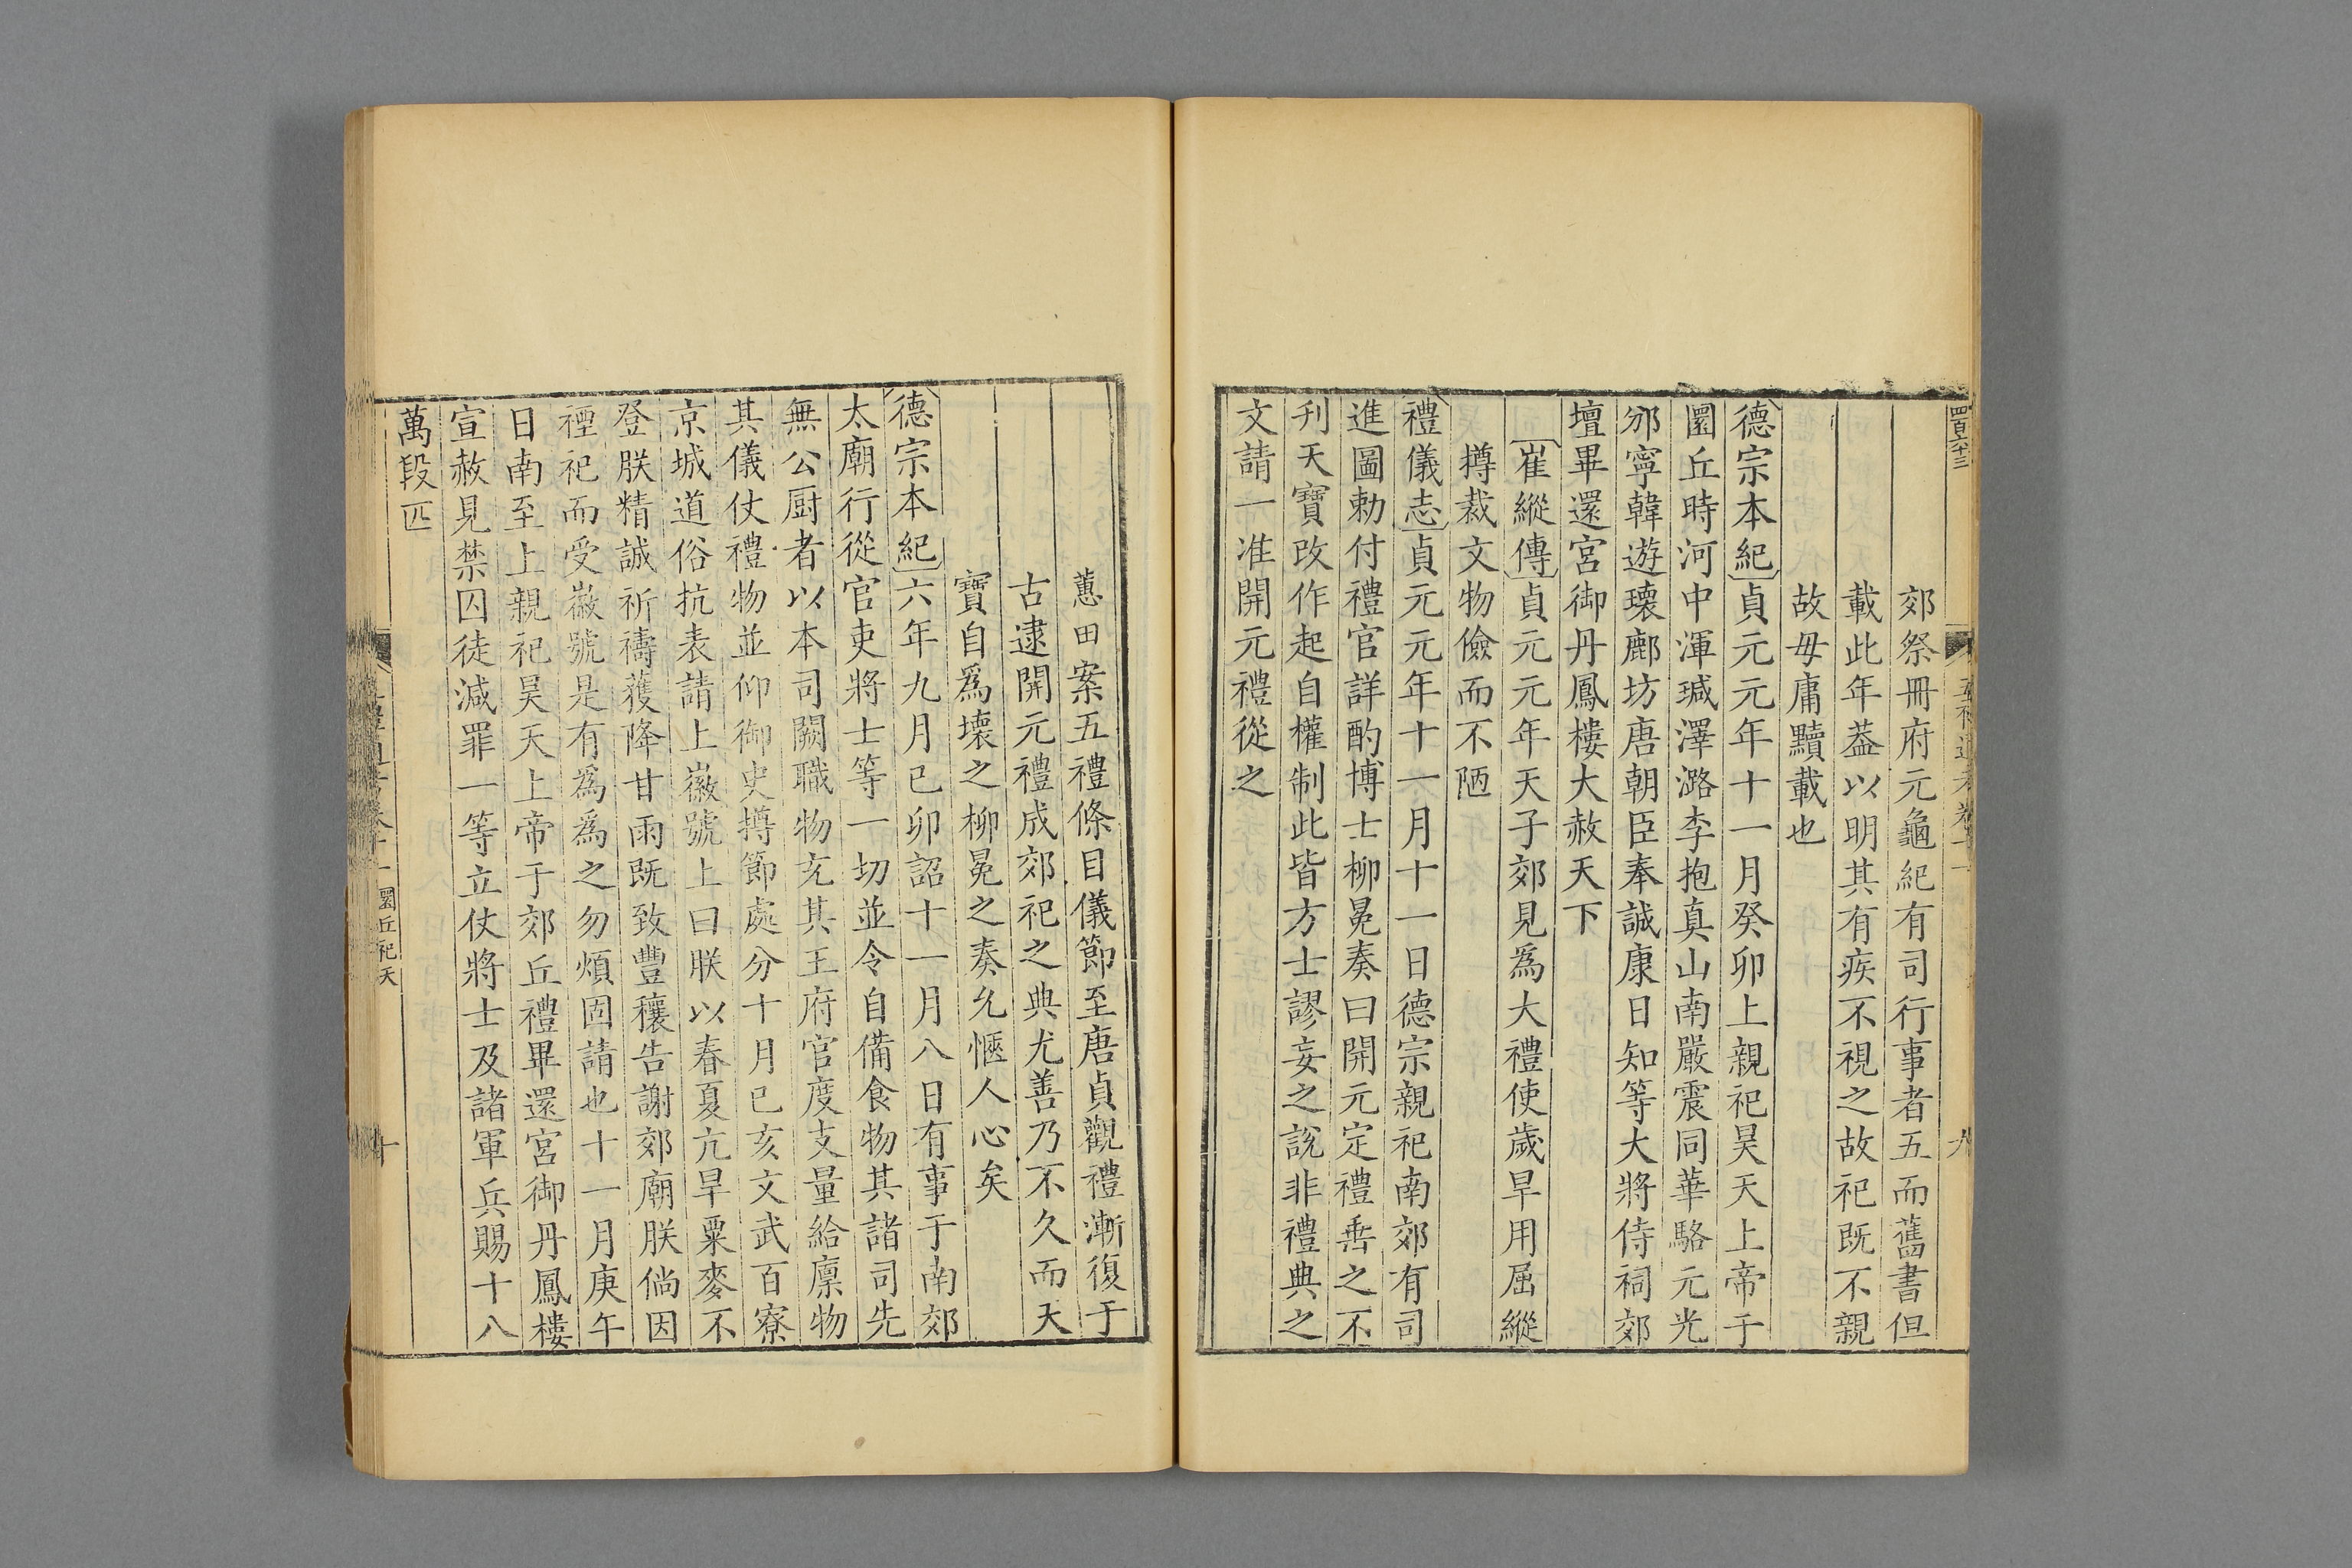 四百六十三
五禮通考卷十一
九
郊祭冊府元龜紀有司行事者五而舊書但
載此年葢以明其有疾不視之故祀既不親
故毋庸黷載也
德宗本紀貞元元年十一月癸卯上親祀昊天上帝于
圜丘時河中渾瑊澤潞李抱真山南嚴震同華駱元光
邠寧韓遊瓌鄜坊唐朝臣奉誠康日知等大將侍祠郊
壇畢還宮御丹鳳樓大赦天下
崔縱傳貞元元年天子郊見爲大禮使歲旱用屈縱
撙裁文物儉而不陋
禮儀志貞元元年十一月十一日德宗親祀南郊有司
進圖勅付禮官詳酌博士柳冕奏曰開元定禮垂之不
刋天寶改作起自權制此皆方士謬妄之說非禮典之
文請一准開元禮從之
蕙田案五禮條目儀節至唐貞觀禮漸復于
古逮開元禮成郊祀之典尤善乃不久而天
寶自爲壞之柳冕之奏允愜人心矣
德宗本紀六年九月己卯詔十一月八日有事于南郊
太廟行從官吏將士等一切並令自備食物其諸司先
無公厨者以本司闕職物充其王府官度支量給廪物
其儀仗禮物並仰御史撙節處分十月已亥文武百寮
京城道俗抗表請上徽號上曰朕以春夏亢旱粟麥不
登朕精誠祈禱獲降甘雨既致豐穰告謝郊廟朕倘因
禋祀而受徽號是有爲爲之勿煩固請也十一月庚午
日南至上親祀昊天上帝于郊丘禮畢還宮御丹鳳樓
宣赦見禁囚徒減罪一等立仗將士及諸軍兵賜十八
萬段匹
五禮通考卷十一
圜丘祀天
十